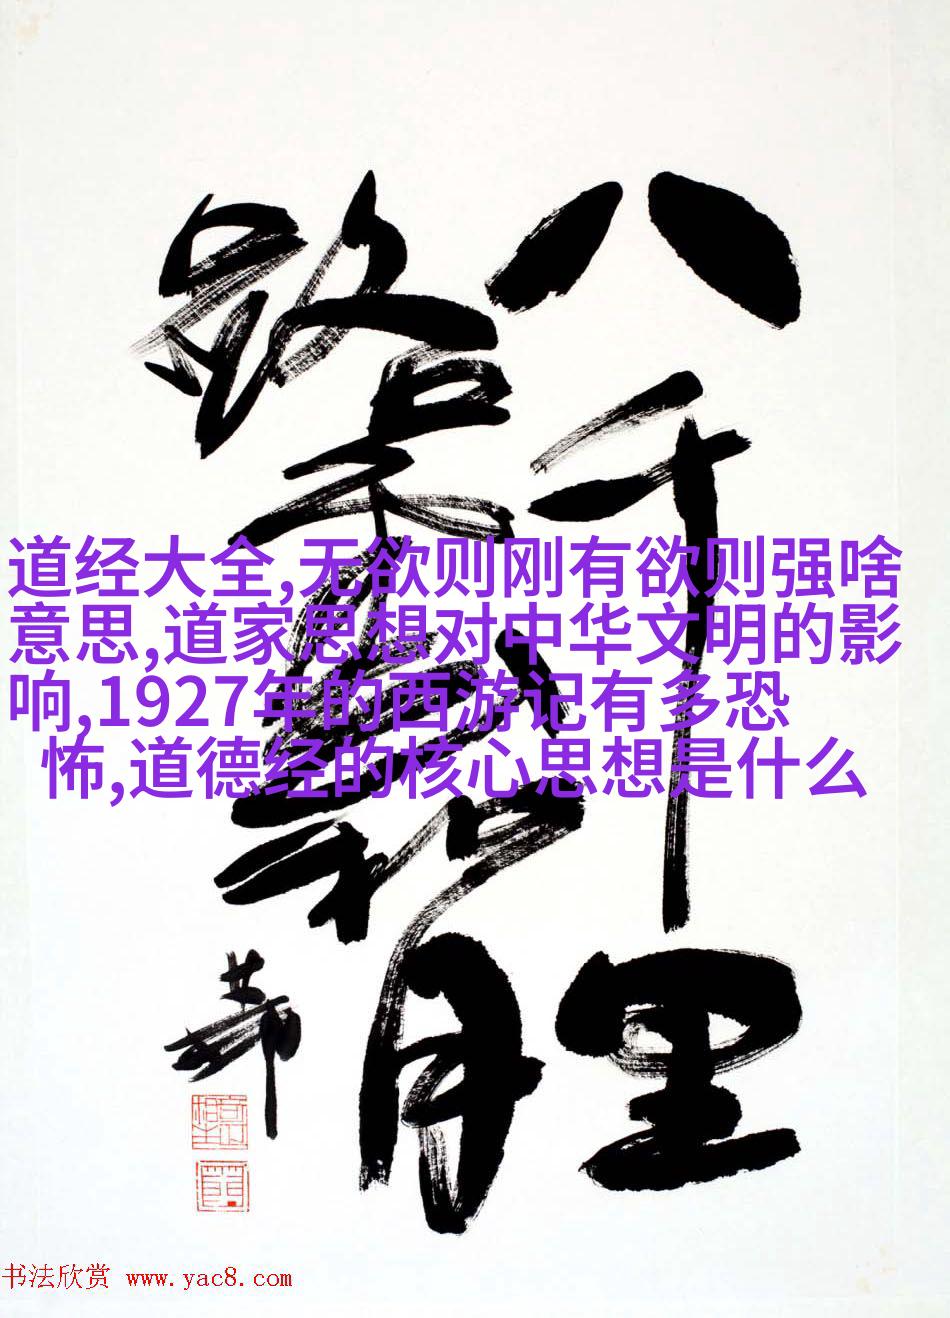 八千里
路雲和月
道经大全,无欲则刚有欲则强啥
意思,道家思想对中华文明的影
响,1927年的西游记有多恐
怖,道德经的核心思想是什么
书法欣赏 www.yac8.com